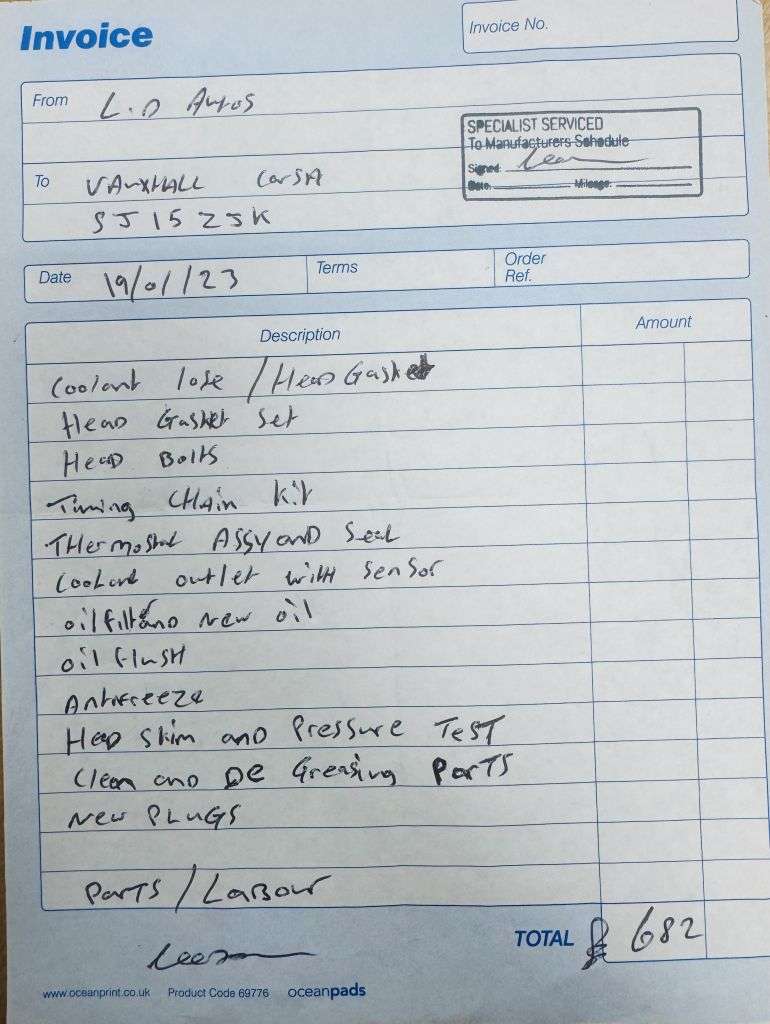 Invoice
Invoice No.
From L.D Autos
SPECIALIST SERVICED
To Manufacturers Schedule
Signed
Date Mileage
To VAUXHALL CorSA
SJ15 ZJK
Date 19/01/23 Terms Order Ref.
Description Amount
Coolant lose / Head Gasket
Head Gasket Set
Head Bolts
Timing CHAin kit
THermostat ASSY and Seal
Coolant outlet with sensor
oil filt and New oil
oil flush
Antifreeze
Head Skim and Pressure TEST
Clean and DE Greasing PARTS
New PLUGS
PARTS / LABour
TOTAL £ 682
www.oceanprint.co.uk Product Code 69776 oceanpads